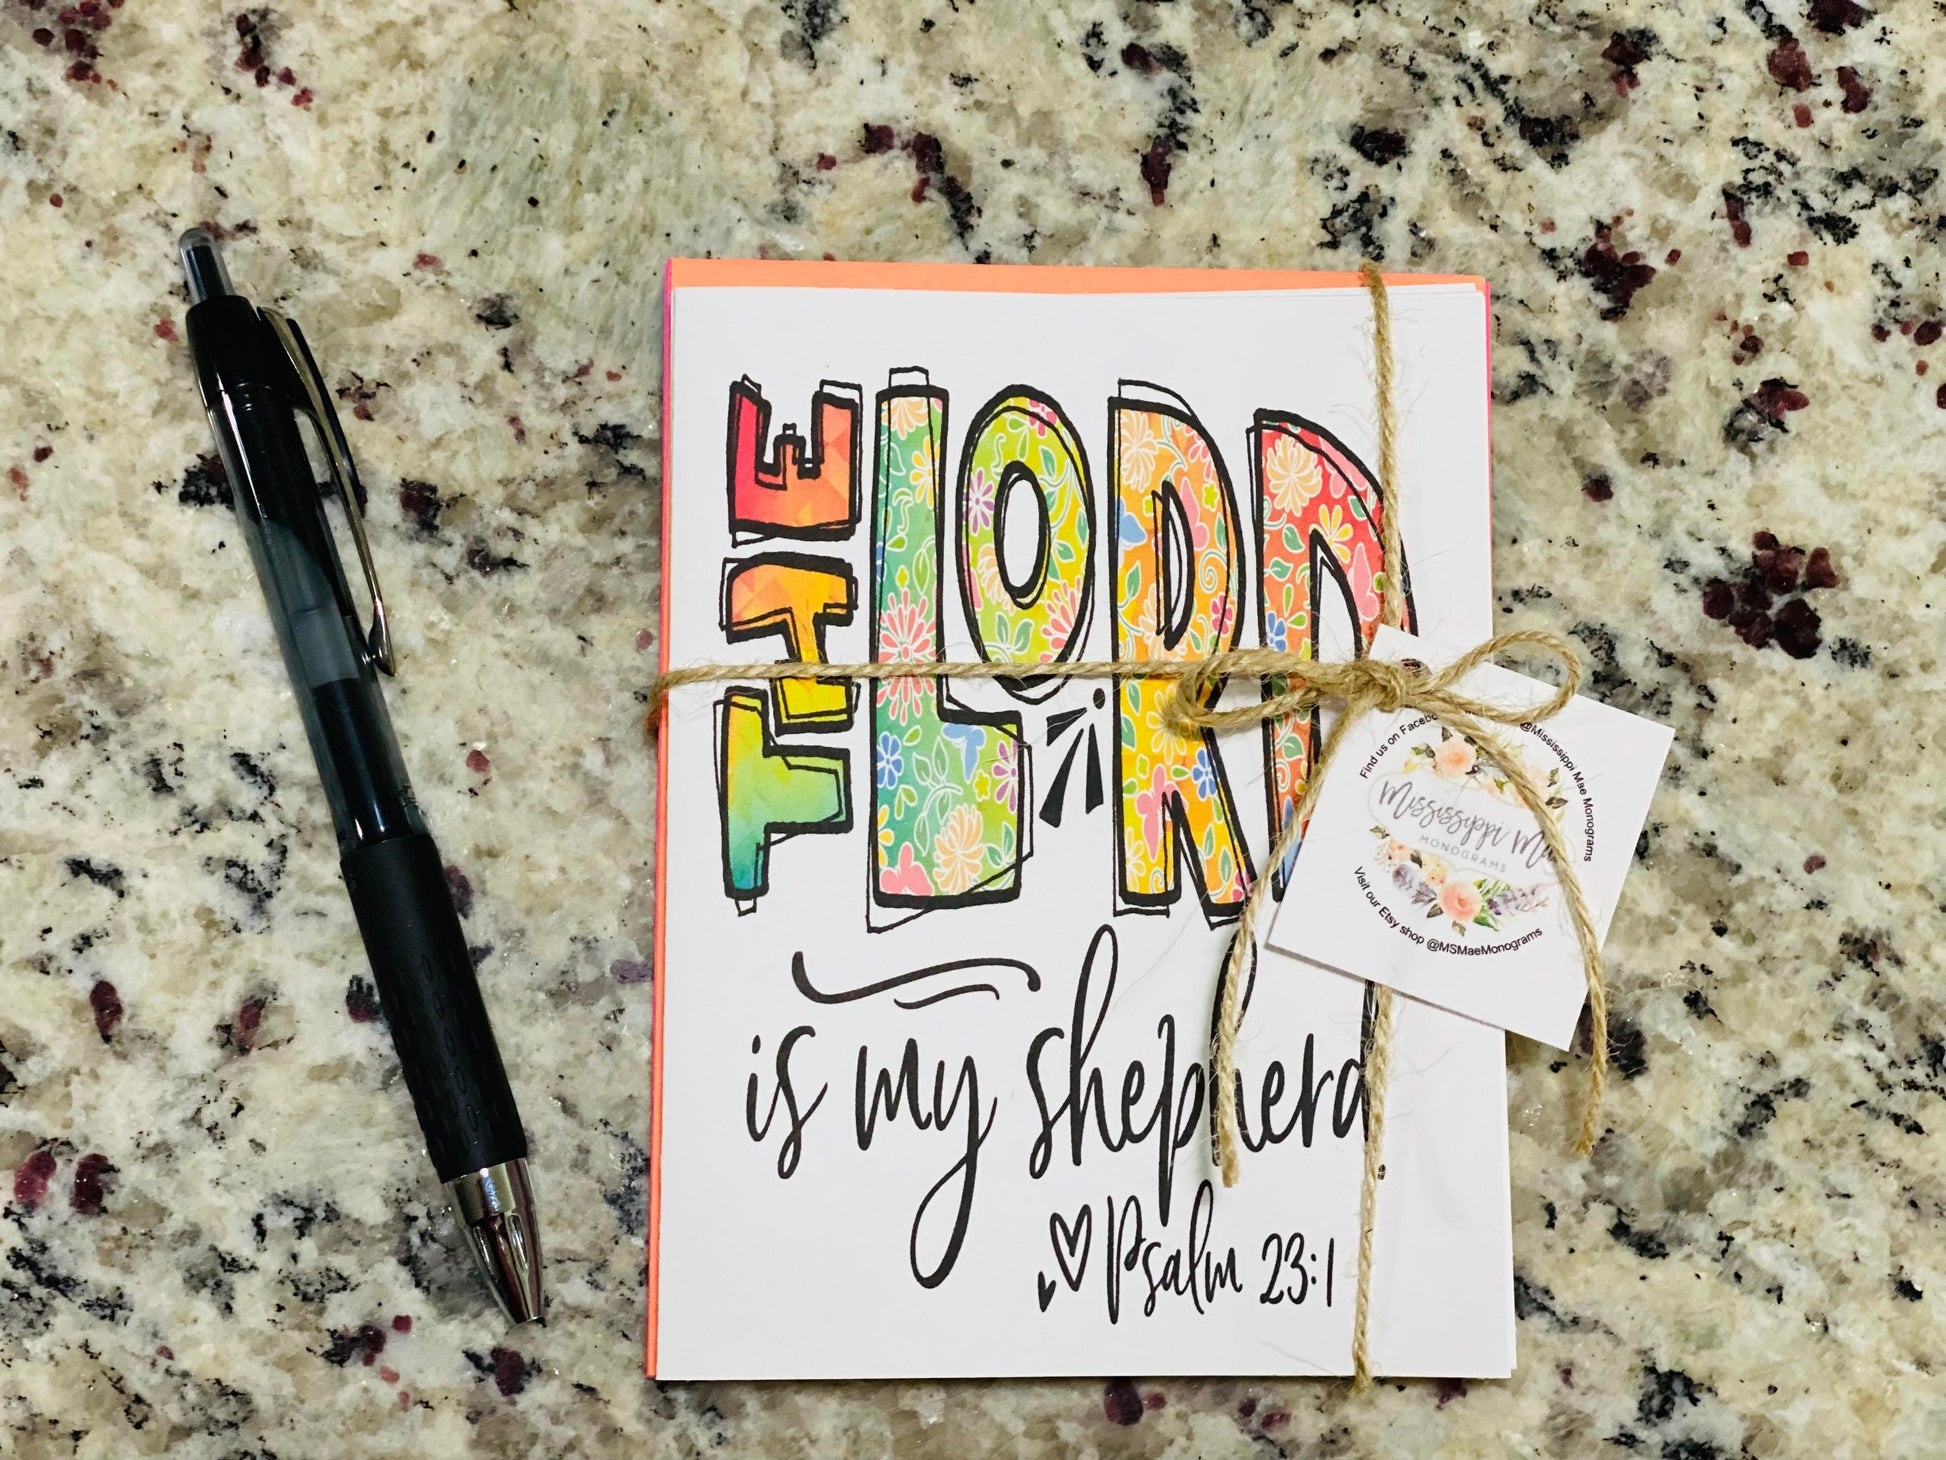 THE
LORD
is my shepherd.
Psalm 23:1
Find us on
@Mississippi Mae Monograms
Mississippi
MONOGRAMS
Visit our Etsy shop @MSMaeMonograms